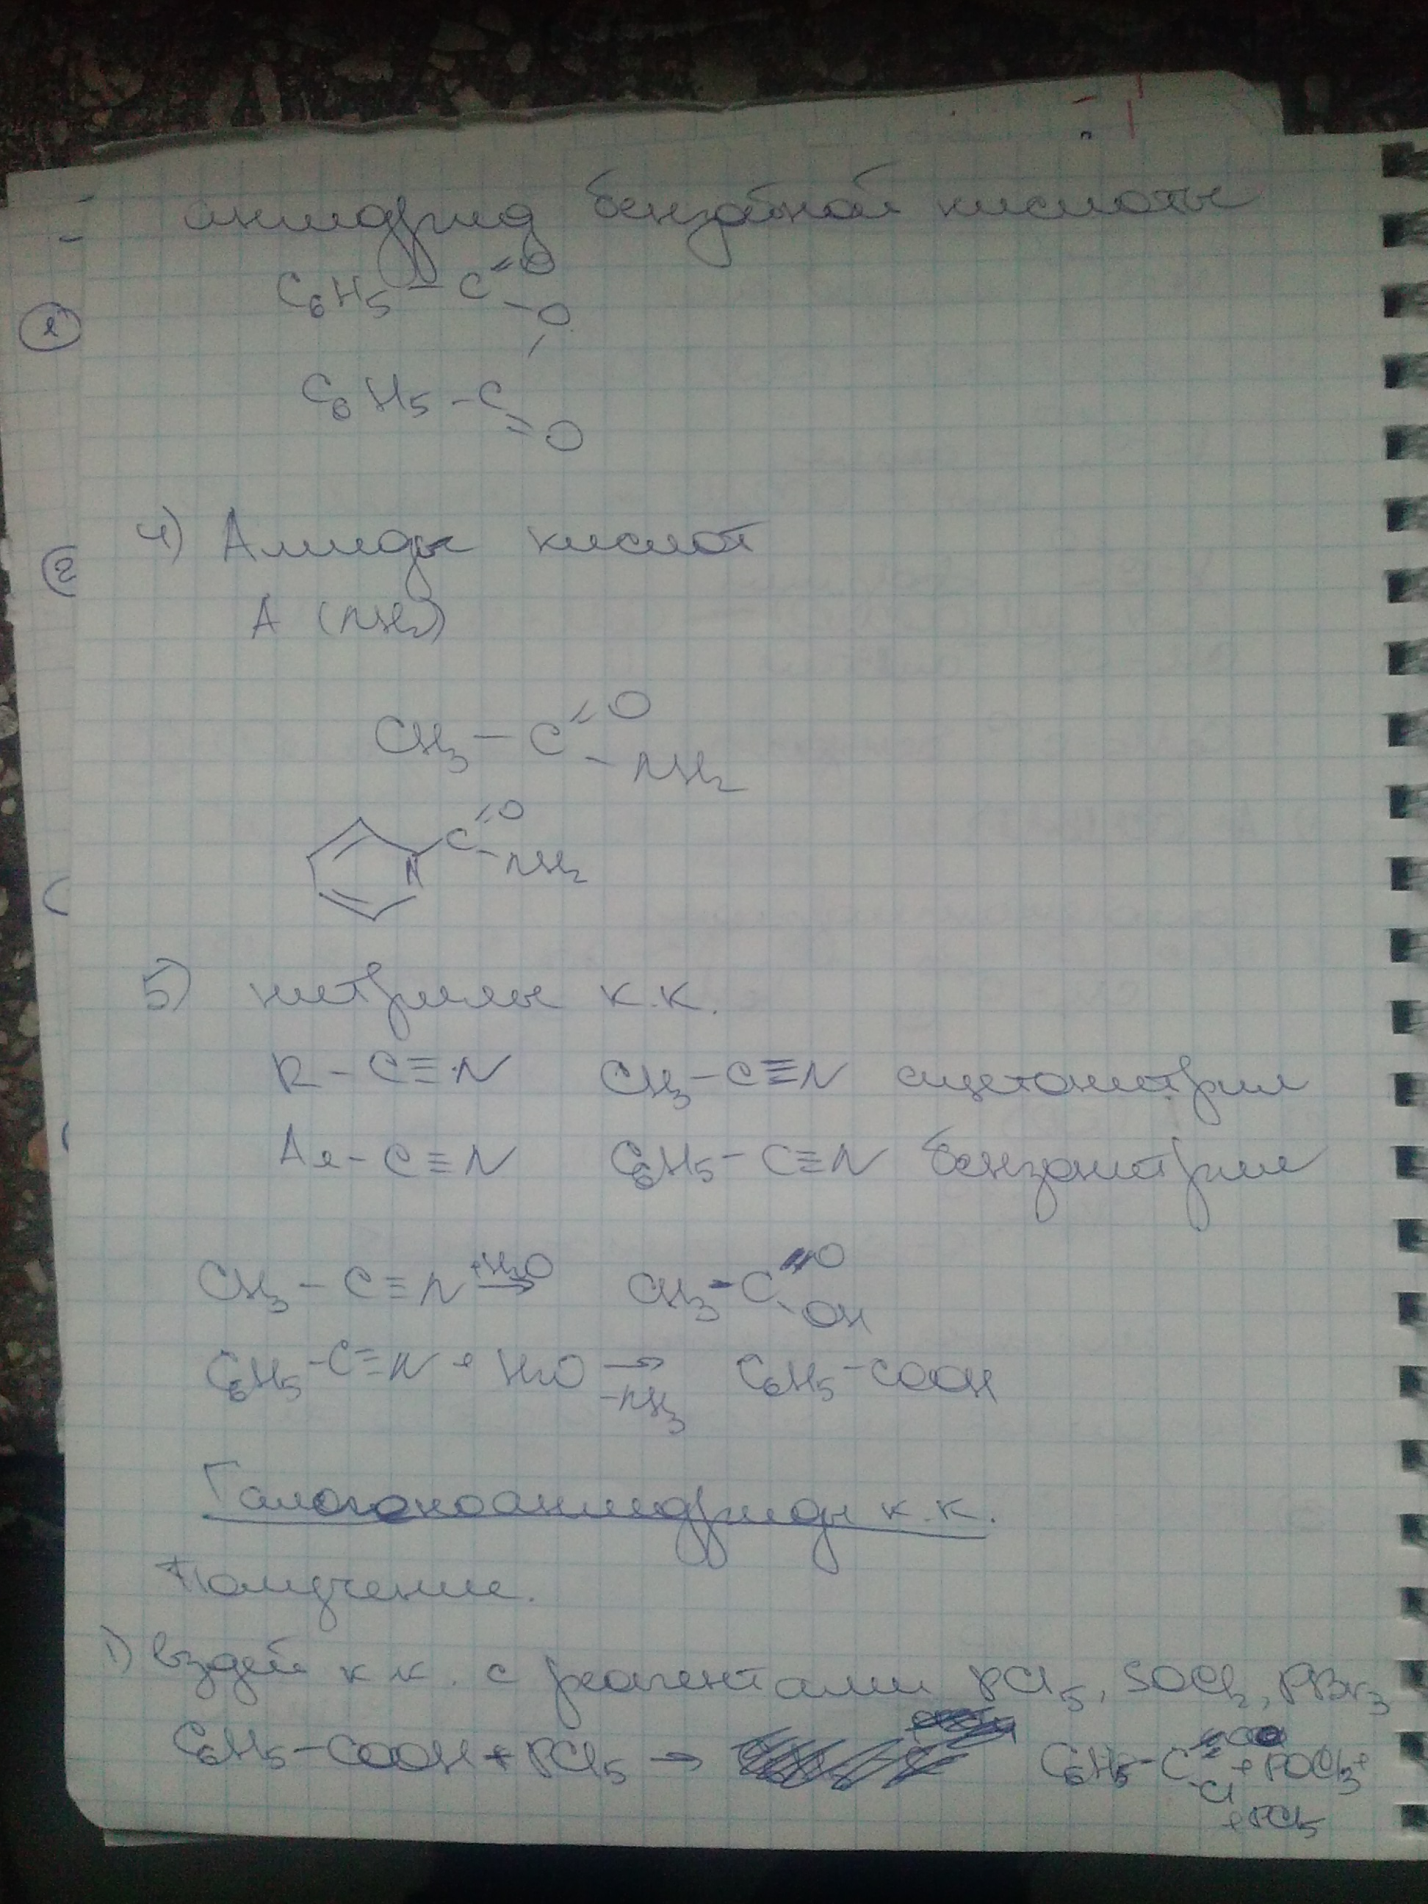 ангидрид бензойной кислоты
C₆H₅ — C =O
– O
/
C₆H₅ – C
= O
4) Амиды кислот
А (NH₂)
CH₃ — C =O
– NH₂
N C =O
– NH₂
5) нитрилы к.к.
R – C≡N CH₃ – C≡N ацетонитрил
Ar – C≡N C₆H₅ – C≡N бензонитрил
CH₃ – C≡N +H₂O → CH₃ – C =O
– OH
C₆H₅ – C≡N + H₂O → –NH₃ C₆H₅ – COOH
Галогеноангидриды к.к.
Получение.
1) вздей к.к. с реагентами PCl₅, SOCl₂, PBr₃
C₆H₅ – COOH + PCl₅ → C₆H₅ – C =O – Cl + POCl₃ +
+ PCl₅